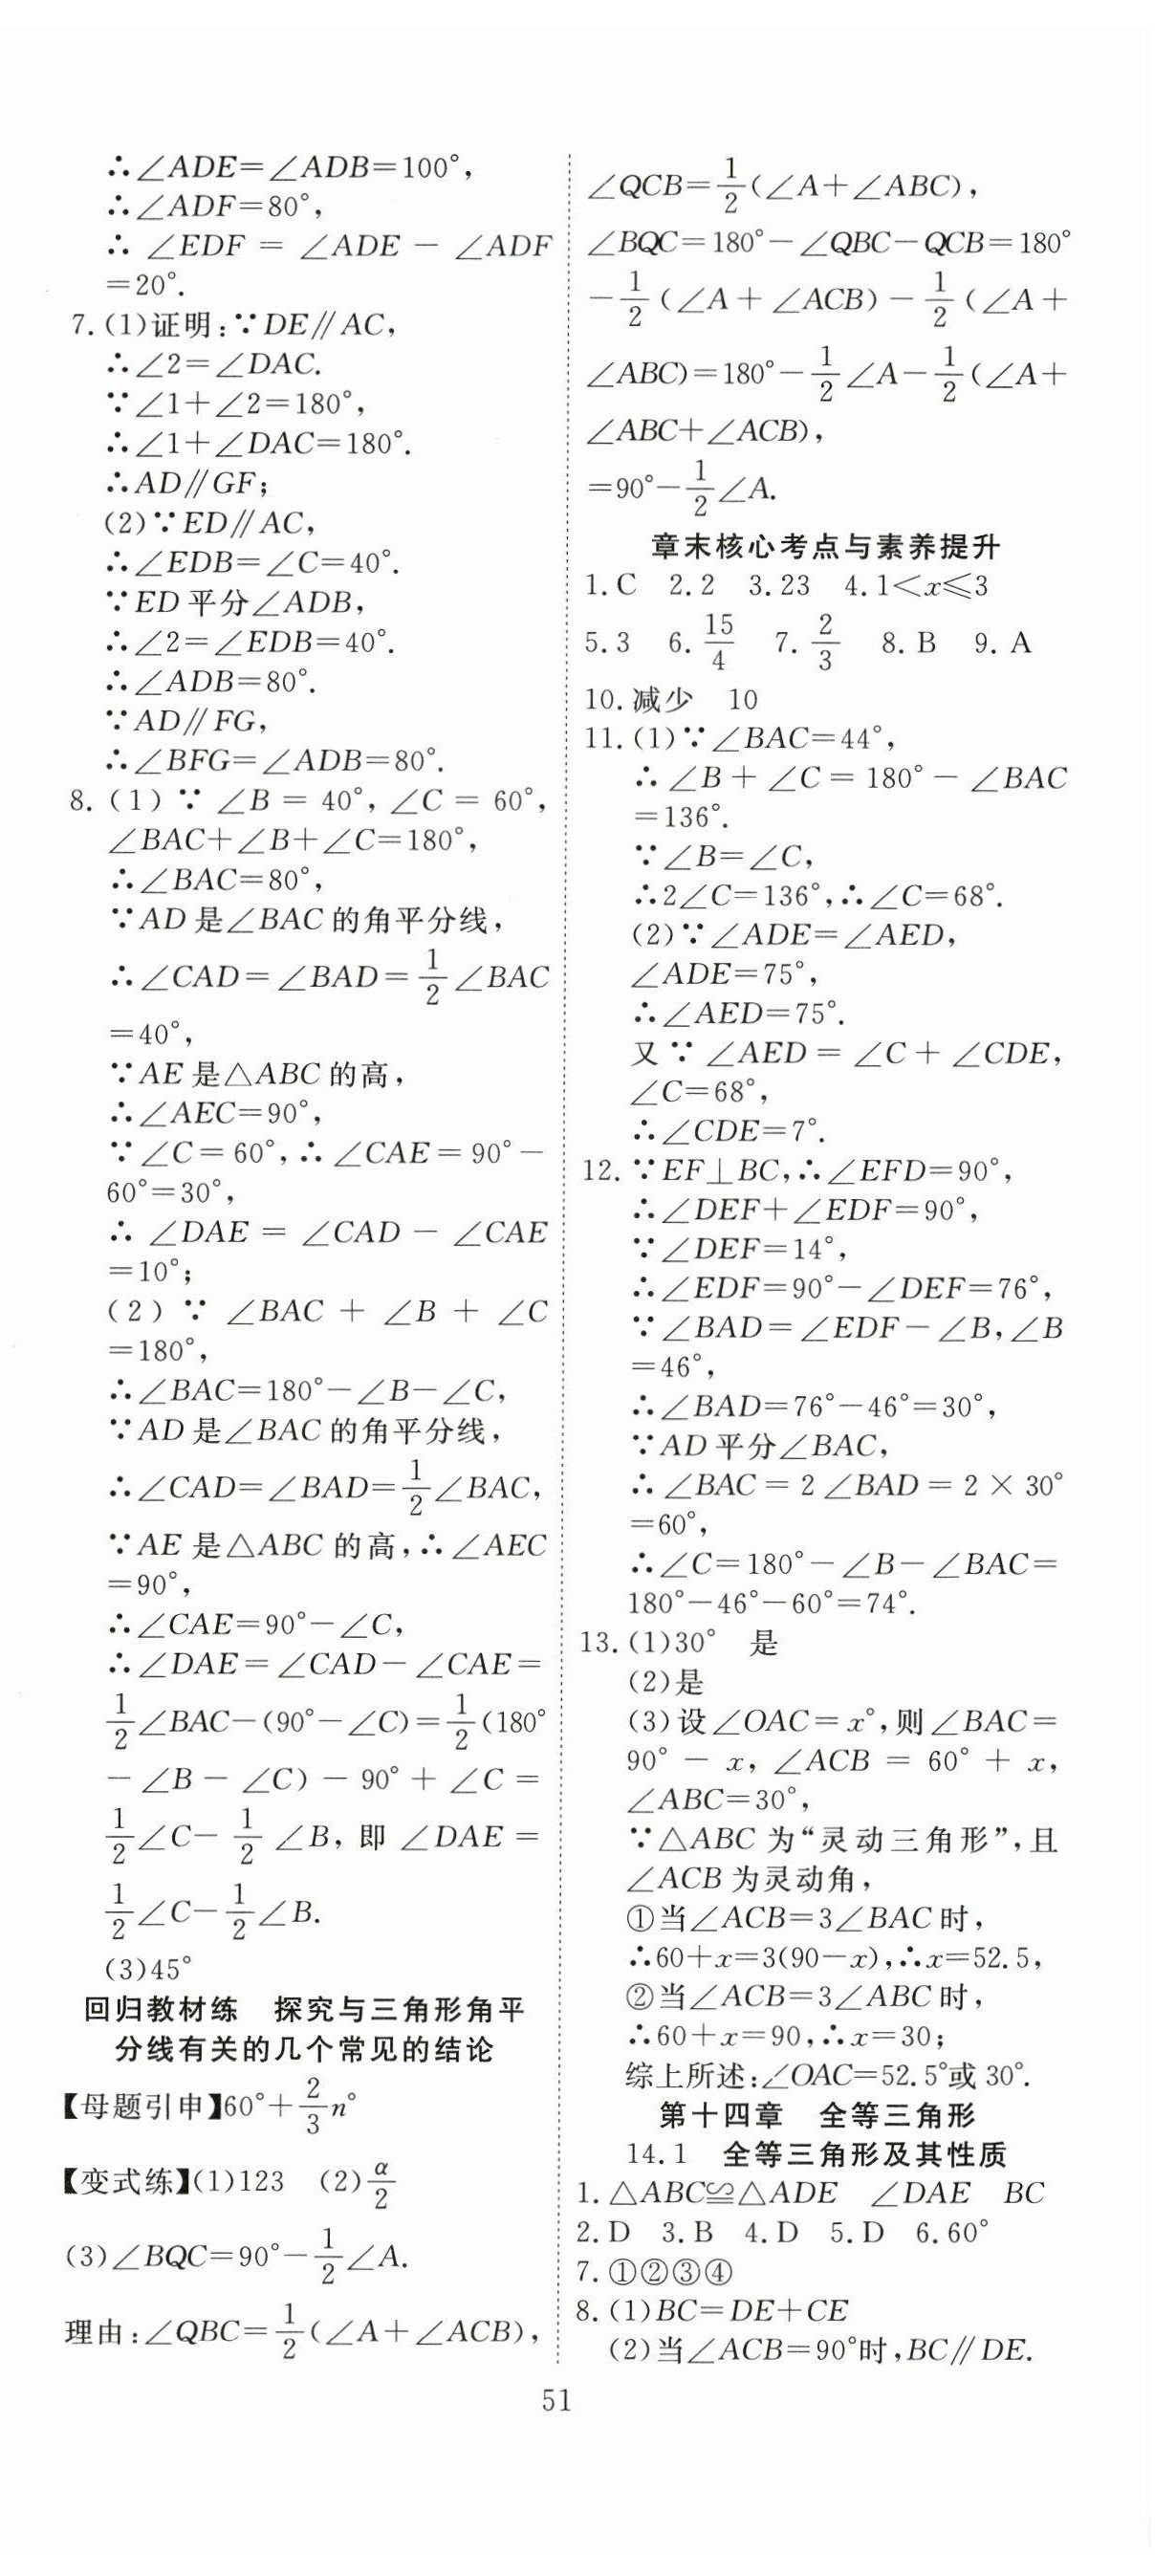 ∴∠ADE=∠ADB=100°,
∴∠ADF=80°,
∴ ∠EDF = ∠ADE - ∠ADF
=20°.
7.(1)证明:∵DE∥AC,
∴∠2=∠DAC.
∵∠1+∠2=180°,
∴∠1+∠DAC=180°.
∴AD∥GF;
(2)∵ED∥AC,
∴∠EDB=∠C=40°.
∵ED平分∠ADB,
∴∠2=∠EDB=40°.
∴∠ADB=80°.
∵AD∥FG,
∴∠BFG=∠ADB=80°.
8.(1)∵ ∠B = 40°, ∠C = 60°,
∠BAC+∠B+∠C=180°,
∴∠BAC=80°,
∵AD是∠BAC的角平分线,
∴∠CAD=∠BAD=1/2∠BAC
=40°,
∵AE是△ABC的高,
∴∠AEC=90°,
∵∠C=60°,∴∠CAE=90°-
60°=30°,
∴ ∠DAE = ∠CAD - ∠CAE
=10°;
(2)∵ ∠BAC + ∠B + ∠C
=180°,
∴∠BAC=180°-∠B-∠C,
∵AD是∠BAC的角平分线,
∴∠CAD=∠BAD=1/2∠BAC,
∵AE是△ABC的高,∴∠AEC
=90°,
∴∠CAE=90°-∠C,
∴∠DAE=∠CAD-∠CAE=
1/2∠BAC-(90°-∠C)=1/2(180°
-∠B-∠C)-90°+∠C=
1/2∠C-1/2∠B,即∠DAE=
1/2∠C-1/2∠B.
(3)45°
回归教材练 探究与三角形角平
分线有关的几个常见的结论
【母题引申】60°+2/3n°
【变式练】(1)123 (2)α/2
(3)∠BQC=90°-1/2∠A.
理由:∠QBC=1/2(∠A+∠ACB),
∠QCB=1/2(∠A+∠ABC),
∠BQC=180°-∠QBC-QCB=180°
-1/2(∠A+∠ACB)-1/2(∠A+
∠ABC)=180°-1/2∠A-1/2(∠A+
∠ABC+∠ACB),
=90°-1/2∠A.
章末核心考点与素养提升
1.C 2.2 3.23 4.1<x≤3
5.3 6.15/4 7.2/3 8.B 9.A
10.减少 10
11.(1)∵∠BAC=44°,
∴∠B+∠C=180°-∠BAC
=136°.
∵∠B=∠C,
∴2∠C=136°,∴∠C=68°.
(2)∵∠ADE=∠AED,
∠ADE=75°,
∴∠AED=75°.
又∵∠AED=∠C+∠CDE,
∠C=68°,
∴∠CDE=7°.
12.∵EF⊥BC,∴∠EFD=90°,
∴∠DEF+∠EDF=90°,
∵∠DEF=14°,
∴∠EDF=90°-∠DEF=76°,
∵∠BAD=∠EDF-∠B,∠B
=46°,
∴∠BAD=76°-46°=30°,
∵AD平分∠BAC,
∴∠BAC=2∠BAD=2×30°
=60°,
∴∠C=180°-∠B-∠BAC=
180°-46°-60°=74°.
13.(1)30° 是
(2)是
(3)设∠OAC=x°,则∠BAC=
90°-x,∠ACB=60°+x,
∠ABC=30°,
∵△ABC为“灵动三角形”,且
∠ACB为灵动角,
①当∠ACB=3∠BAC时,
∴60+x=3(90-x),∴x=52.5,
②当∠ACB=3∠ABC时,
∴60+x=90,∴x=30;
综上所述:∠OAC=52.5°或30°.
第十四章 全等三角形
14.1 全等三角形及其性质
1.△ABC≌△ADE ∠DAE BC
2.D 3.B 4.D 5.D 6.60°
7.①②③④
8.(1)BC=DE+CE
(2)当∠ACB=90°时,BC∥DE.
51